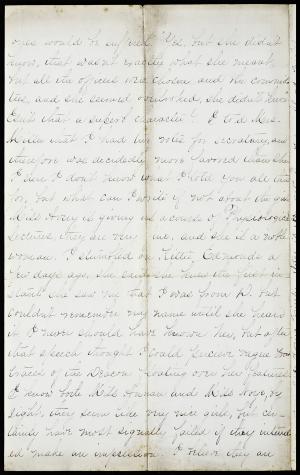 ones would be suffered. "Yes, but she didn't
know, that wasn't exactly what she meant,
but all the offices were chosen and the commit-
tees, and she seemed overlooked, she didn't know"
Isn't that a superb character? I told Mrs.
Miller that I had two votes for secretary, and
therefore was decidedly more favored than she.
I fear I don't know what I told you all this
for, but what can I write if not about the
Miss Avery is giving us a course of Physiological
lectures, they are very fine and she is a noble
woman. I stumbled on Kittie Edmonds a
few days ago, she said she knew the first in-
stant she saw me that I was from but
couldn't remember my name until she heard
it. I never should have known her, but after
that speech thought I could perceive vague
traces of the Deacon floating over her features.
I know both Miss and Miss
Light, they seem like very nice girls, but cer-
tainly have most signally failed if they intend-
ed make an impression. I believe they are